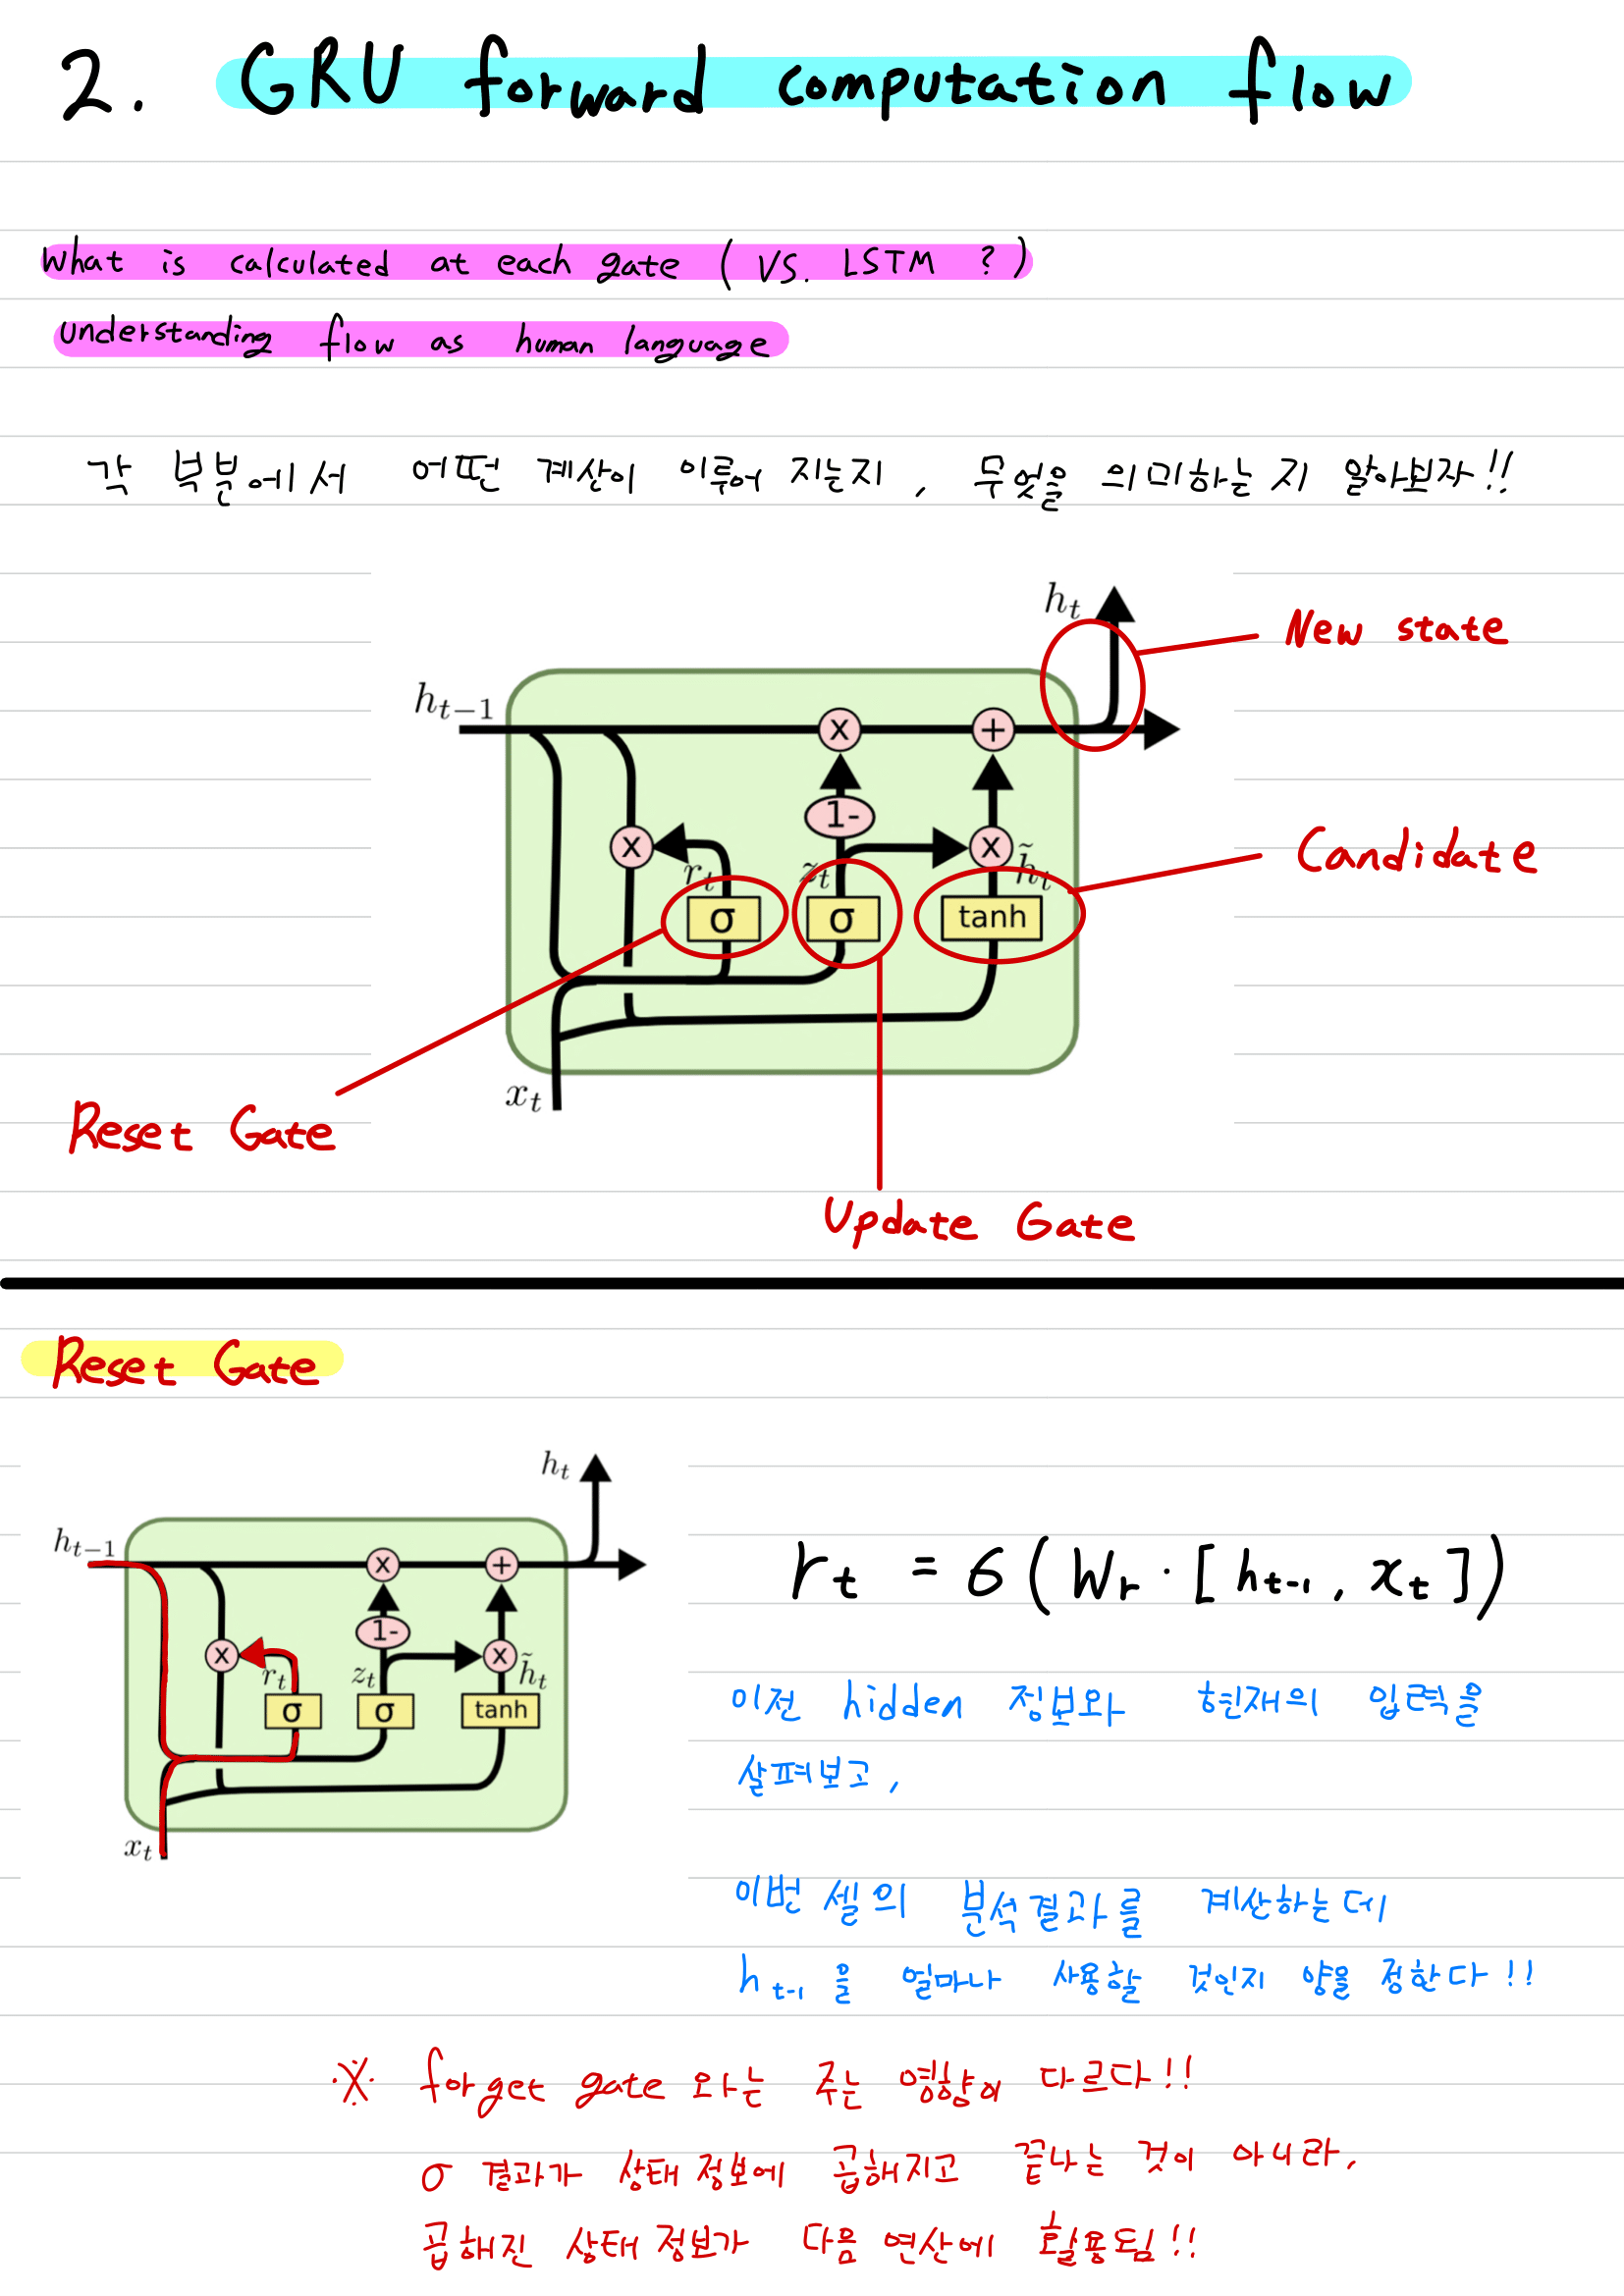 2. GRU forward computation flow
What is calculated at each gate ( VS. LSTM ? )
understanding flow as human language
각 부분에서 어떤 계산이 이루어 지는지, 무엇을 의미하는 지 알아보자!!
h_t
New state
h_{t-1}
x +
1-
Candidate
x x
r_t z_t h̃_t
σ σ tanh
x_t
Reset Gate
Update Gate
Reset Gate
h_t
h_{t-1}
x +
1-
x x
r_t z_t h̃_t
σ σ tanh
x_t
r_t = σ ( W_r · [ h_{t-1} , x_t ] )
이전 hidden 정보와 현재의 입력을
살펴보고,
이번 셀의 분석결과를 계산하는데
h_{t-1} 을 얼마나 사용할 것인지 양을 정한다!!
※ forget gate 와는 주는 영향이 다르다!!
σ 결과가 상태 정보에 곱해지고 끝나는 것이 아니라,
곱해진 상태 정보가 다음 연산에 활용됨!!